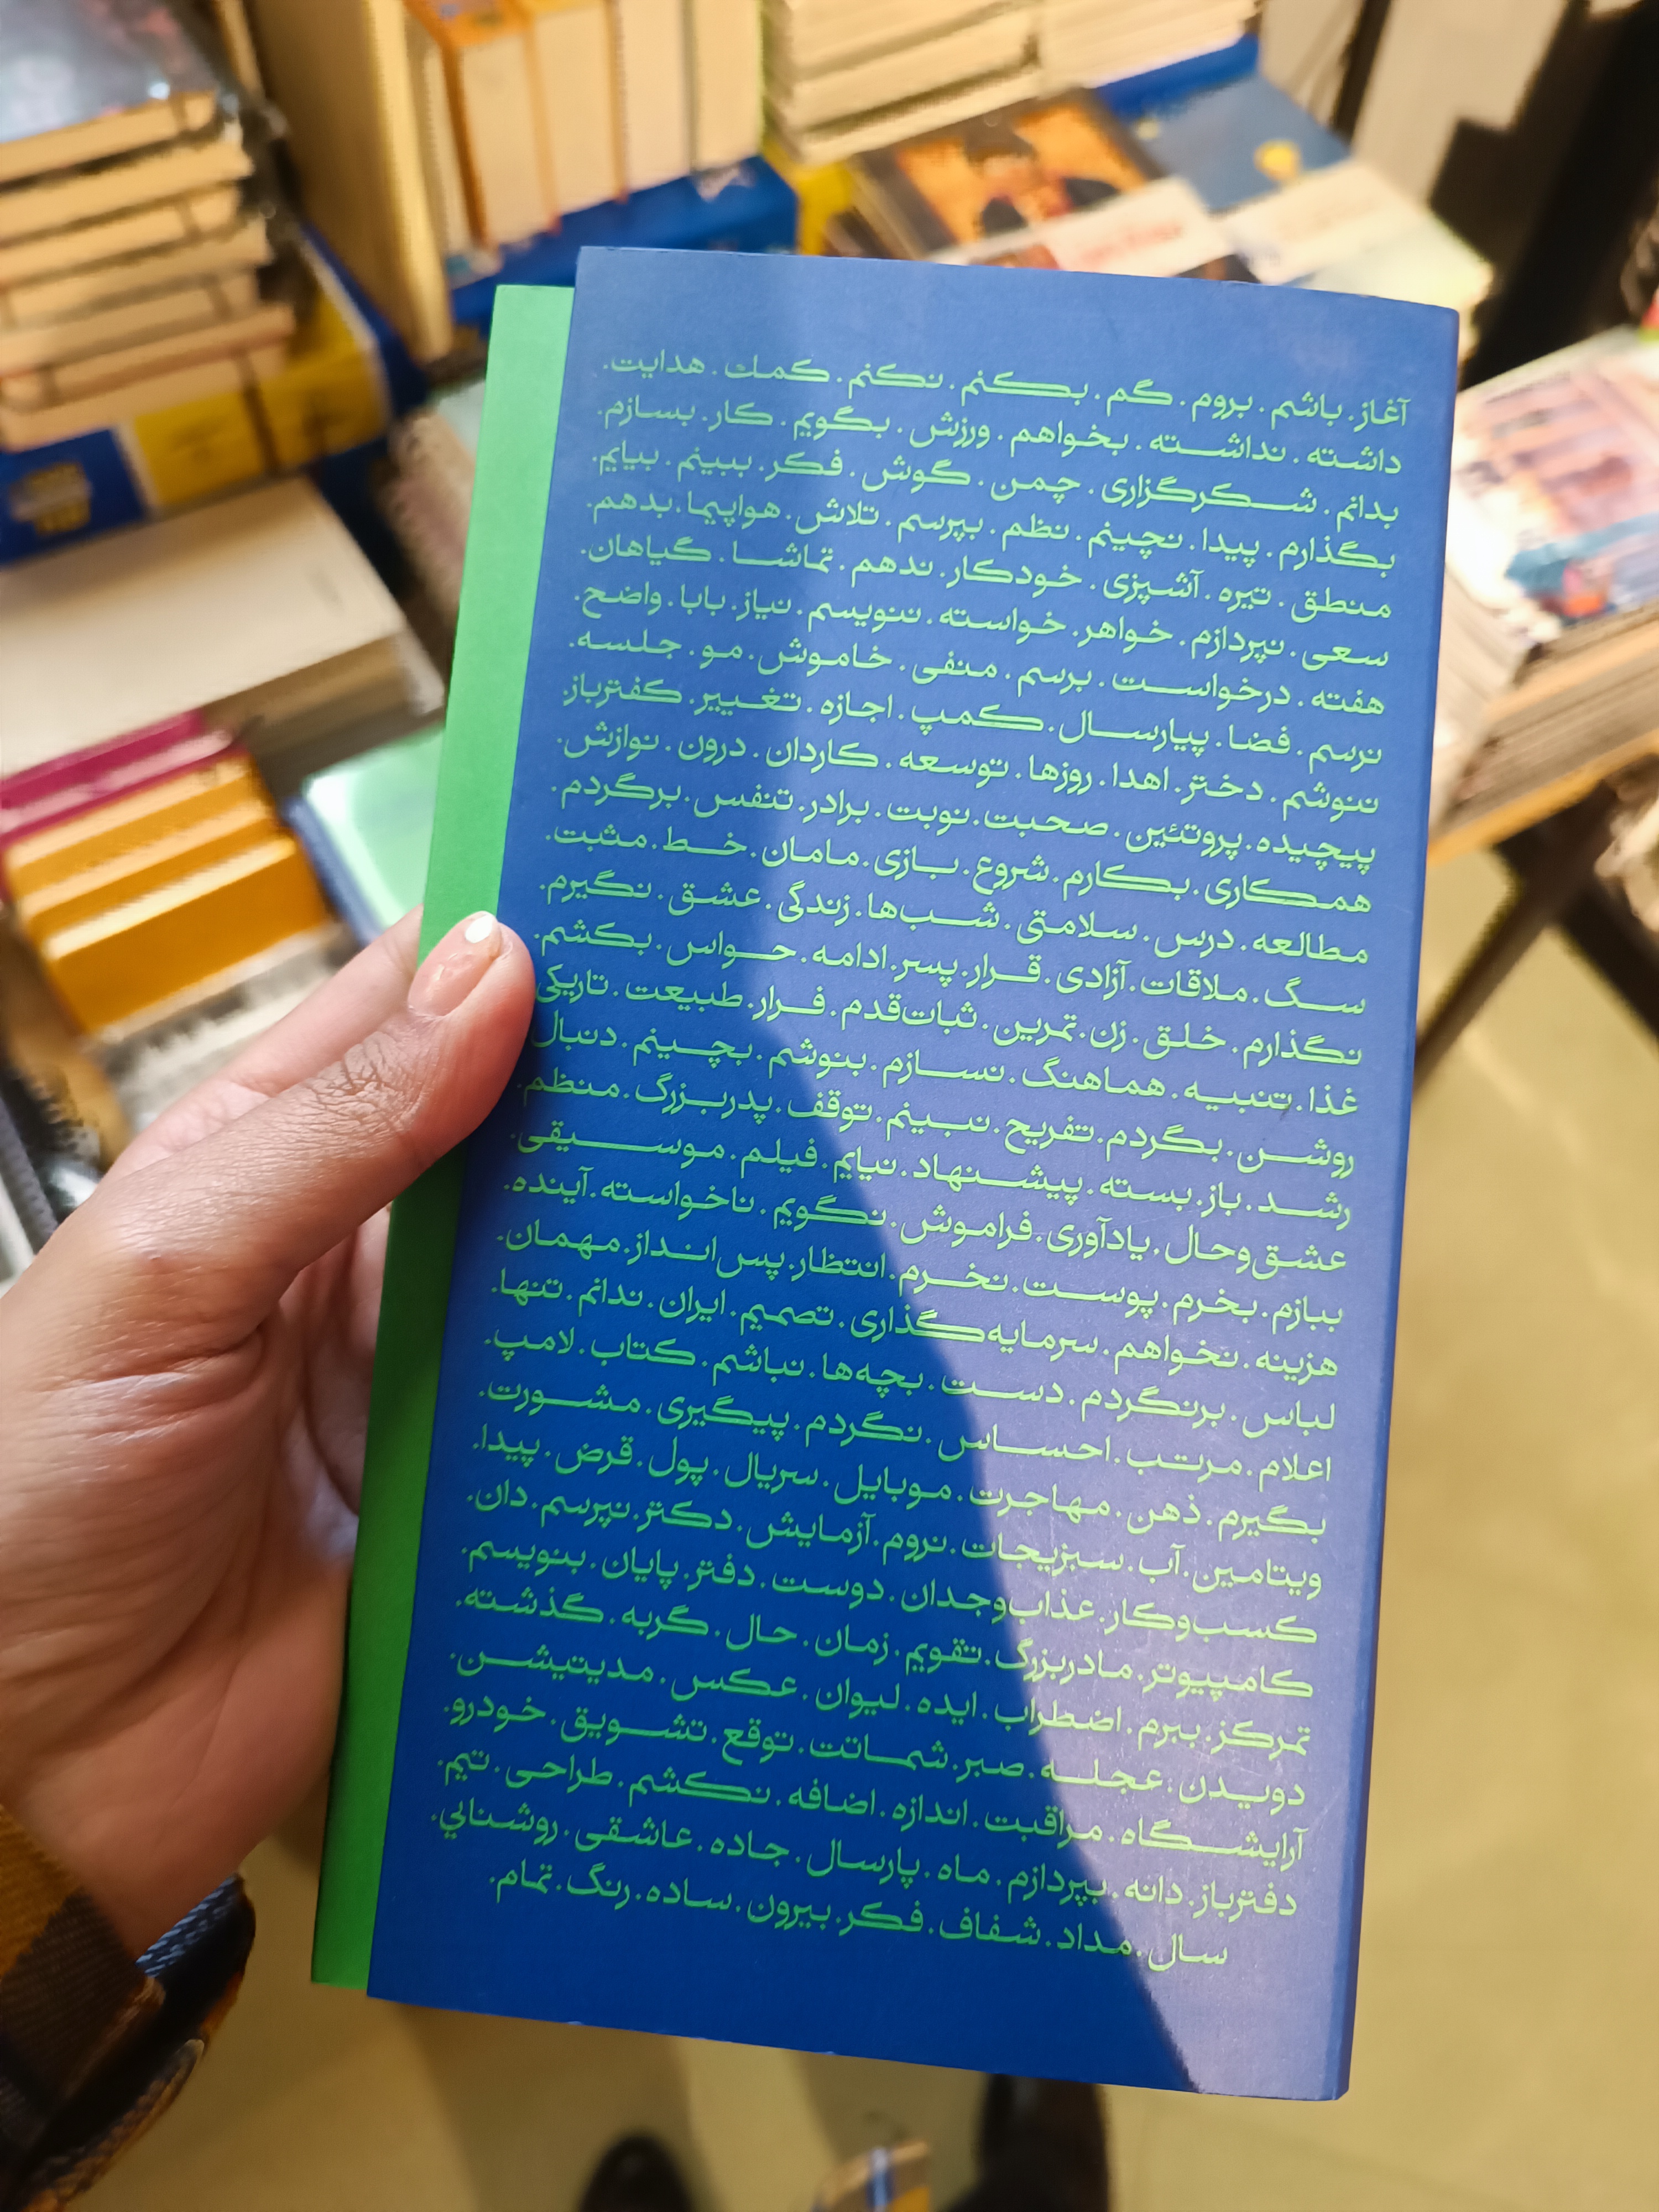 آغاز. باشم. بروم. گم. بکنم. نکنم. کمک. هدایت.
داشته. نداشته. بخواهم. ورزش. بگویم. کار. بسازم.
بدانم. شکرگزاری. چمن. گوش. فکر. ببینم. بیایم.
بگذارم. پیدا. نچینم. نظم. بپرسم. تلاش. هواپیما. بدهم.
منطق. تیره. آشپزی. خودکار. ندهم. تماشا. گیاهان.
سعی. نپردازم. خواهر. خواسته. ننویسم. نیاز. بابا. واضح.
هفته. درخواست. برسم. منفی. خاموش. مو. جلسه.
نرسم. فضا. پیارسال. کمپ. اجازه. تغییر. کفترباز.
ننوشم. دختر. اهدا. روزها. توسعه. کاردان. درون. نوازش.
پیچیده. پروتئین. صحبت. نوبت. برادر. تنفس. برگردم.
همکاری. بکارم. شروع. بازی. مامان. خط. مثبت.
مطالعه. درس. سلامتی. شب‌ها. زندگی. عشق. نگیرم.
سگ. ملاقات. آزادی. قرار. پسر. ادامه. حواس. بکشم.
نگذارم. خلق. زن. تمرین. ثبات‌قدم. فرار. طبیعت. تاریکی
غذا. تنبیه. هماهنگ. نسازم. بنوشم. بچینم. دنبال
روشن. بگردم. تفریح. نبینم. توقف. پدربزرگ. منظم.
رشد. باز. بسته. پیشنهاد. نیایم. فیلم. موسیقی.
عشق‌وحال. یادآوری. فراموش. نگویم. ناخواسته. آینده.
ببازم. بخرم. پوست. نخرم. انتظار. پس‌انداز. مهمان.
هزینه. نخواهم. سرمایه‌گذاری. تصمیم. ایران. ندانم. تنها.
لباس. برنگردم. دست. بچه‌ها. نباشم. کتاب. لامپ.
اعلام. مرتب. احساس. نگردم. پیگیری. مشورت.
بگیرم. ذهن. مهاجرت. موبایل. سریال. پول. قرض. پیدا.
ویتامین. آب. سبزیجات. نروم. آزمایش. دکتر. نپرسم. دان.
کسب‌وکار. عذاب‌وجدان. دوست. دفتر. پایان. بنویسم.
کامپیوتر. مادربزرگ. تقویم. زمان. حال. گربه. گذشته.
تمرکز. ببرم. اضطراب. ایده. لیوان. عکس. مدیتیشن.
دویدن. عجله. صبر. شماتت. توقع. تشویق. خودرو.
آرایشگاه. مراقبت. اندازه. اضافه. نکشم. طراحی. تیم.
دفترباز. دانه. بپردازم. ماه. پارسال. جاده. عاشقی. روشنایي.
سال. مداد. شفاف. فکر. بیرون. ساده. رنگ. تمام.